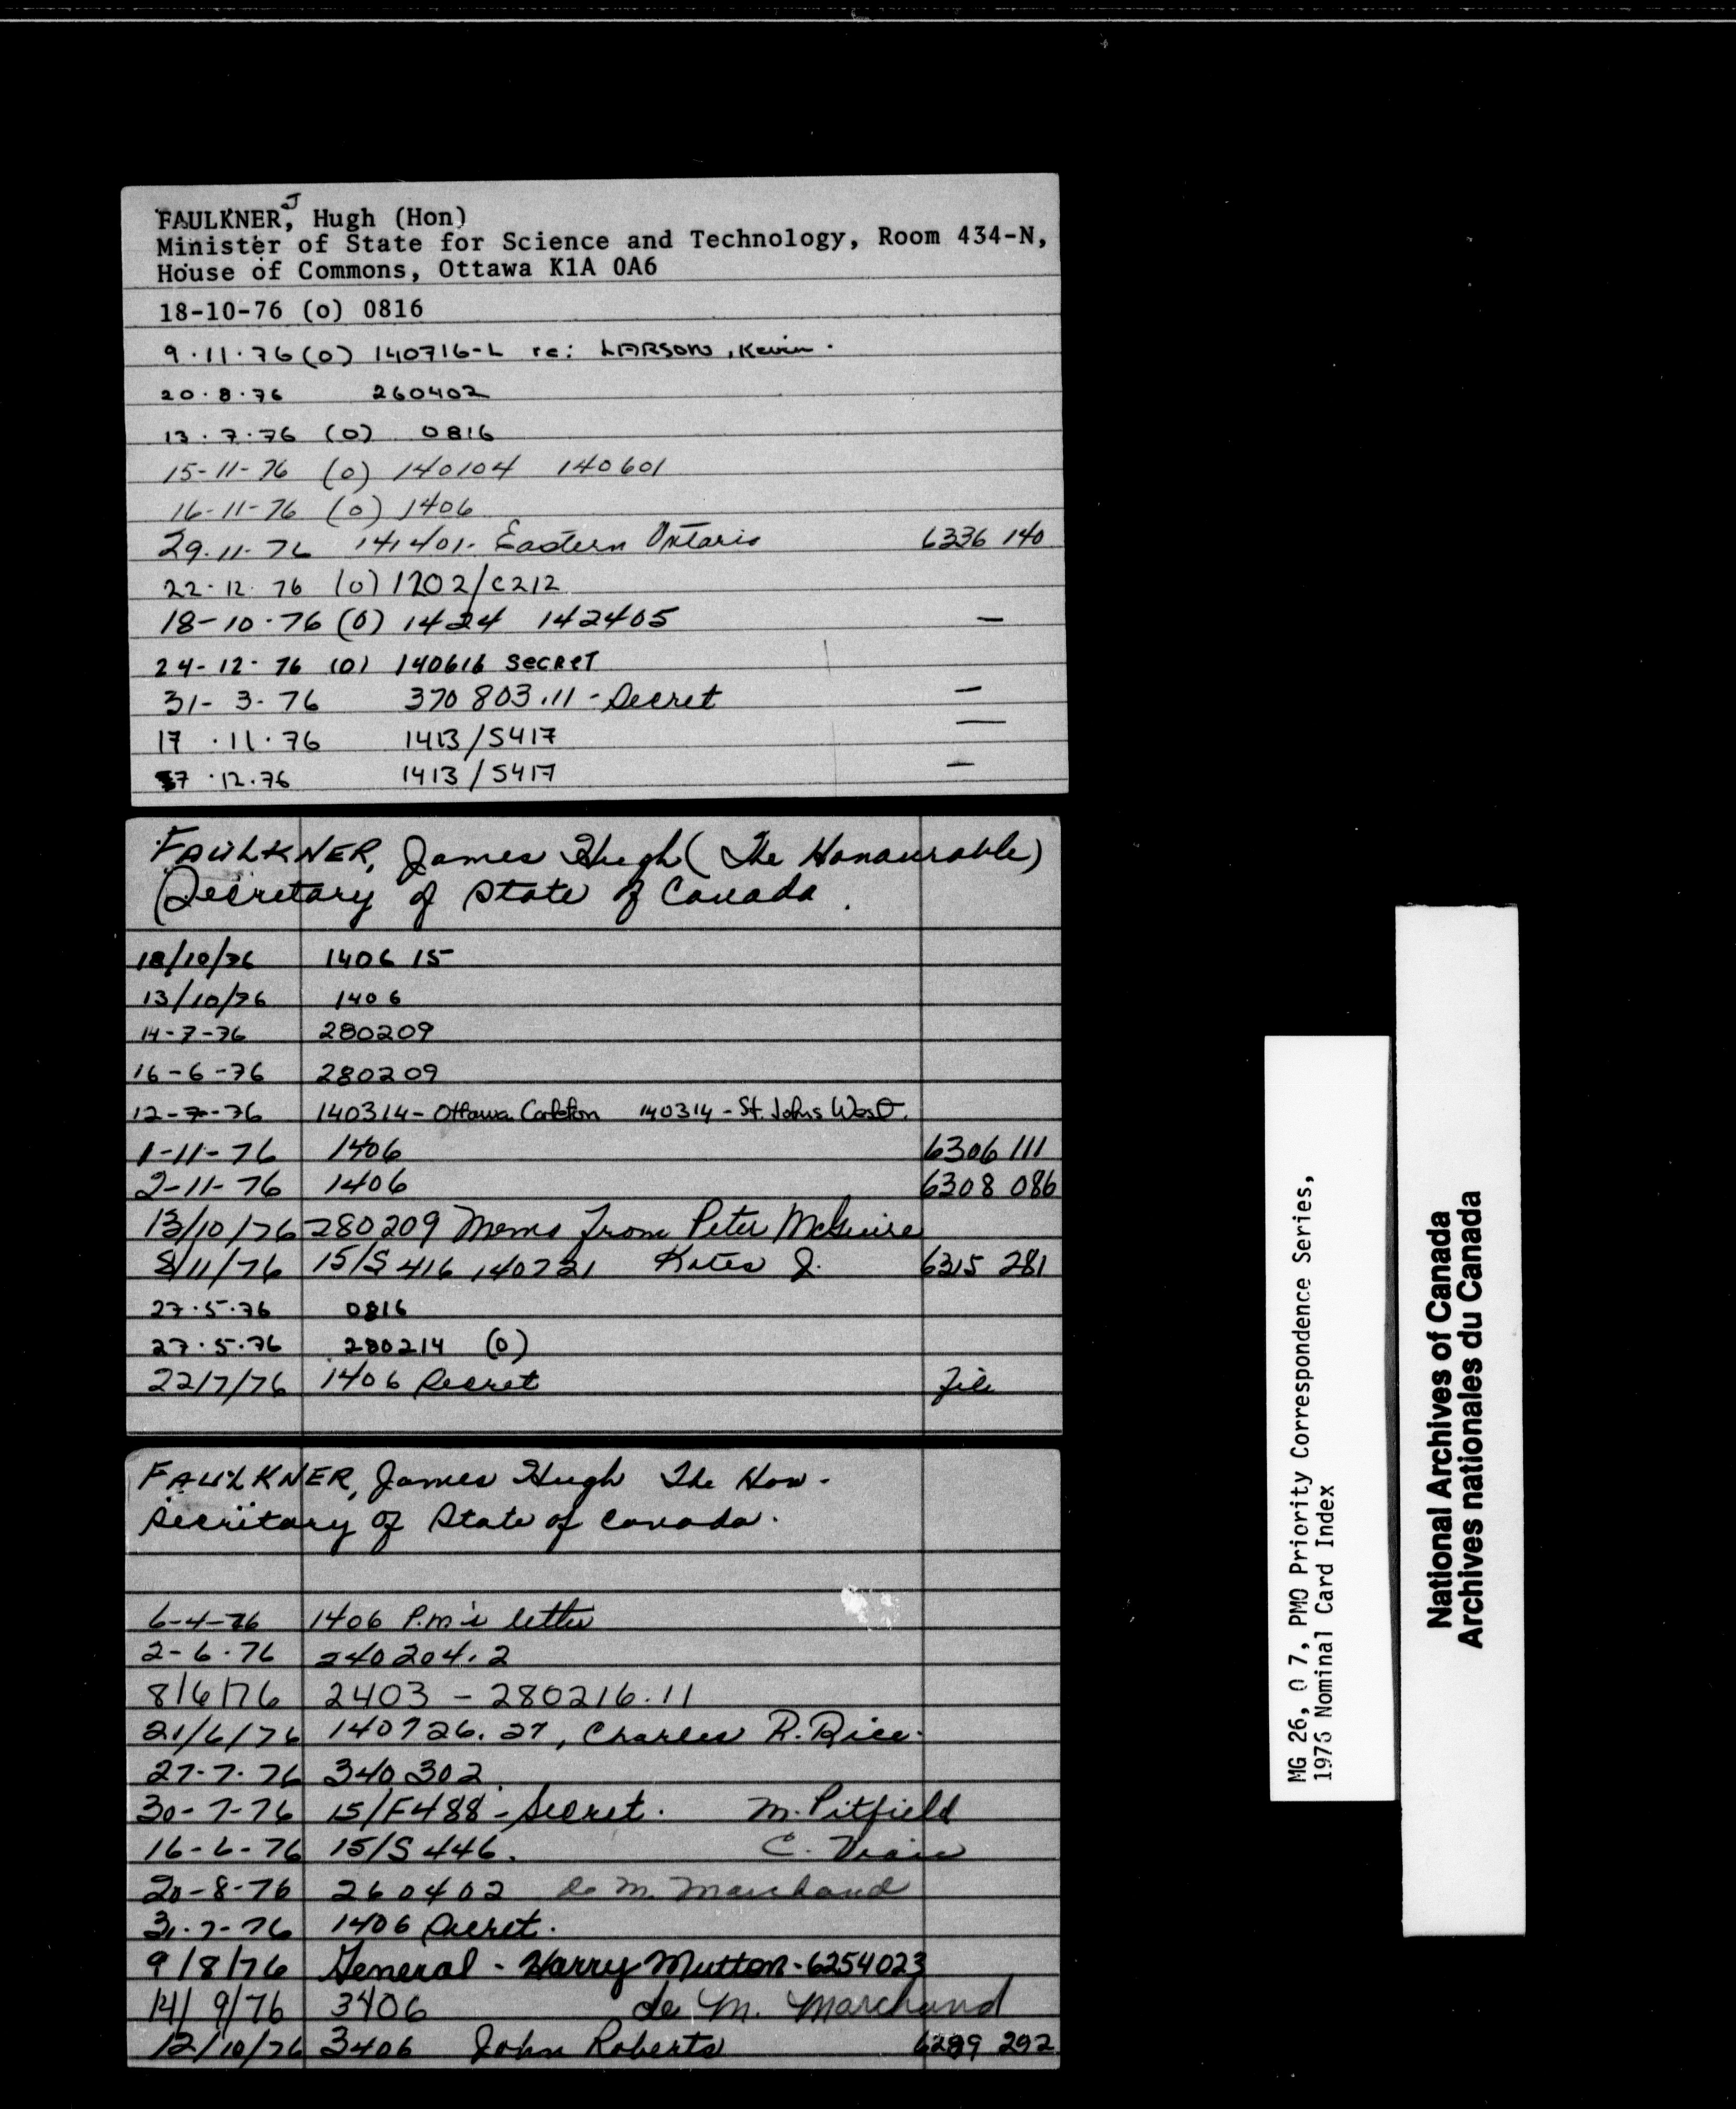 FAULKNER, J Hugh (Hon)
Minister of State for Science and Technology, Room 434-N,
House of Commons, Ottawa K1A 0A6
18-10-76 (o) 0816
9.11.76 (o) 140716-L re: LARSON, Kevin.
20.8.76 260402
13.7.76 (o) 0816
15-11-76 (o) 140104 140601
16-11-76 (o) 1406
29.11.76 141401. Eastern Ontario 6336 140
22.12.76 (o) 1202/C212
18-10-76 (o) 1424 142405 —
24-12-76 (o) 140616 SECRET
31-3-76 370803.11 - Secret —
17.11.76 1413/S417 —
7.12.76 1413/S417 —
FAULKNER, James Hugh (The Honourable)
Secretary of State of Canada.
18/10/76 1406 15
13/10/76 1406
14-7-76 280209
16-6-76 280209
12-7-76 140314 - Ottawa Carleton 140314 - St. Johns West.
1-11-76 1406 6306 111
2-11-76 1406 6308 086
13/10/76 280209 Memo from Peter McGuire
8/11/76 15/S416 140721 Kates J. 6315 281
27.5.76 0816
27.5.76 280214 (o)
22/7/76 1406 Secret file
FAULKNER, James Hugh The Hon.
Secretary of State of Canada.
6-4-76 1406 P.M's letter
2-6-76 240204.2
8/6/76 2403 - 280216.11
21/6/76 140726.27, Charles R. Rice.
27-7-76 340302.
30-7-76 15/F488 - Secret. M. Pitfield
16-6-76 15/S446. C. Viau
20-8-76 260402 de M. Marchand
31-7-76 1406 Secret.
9/8/76 General - Harry Mutton - 6254023
14/9/76 3406 de M. Marchand
12/10/76 3406 John Roberts 6289 292
MG 26, O 7, PMO Priority Correspondence Series,
1976 Nominal Card Index
National Archives of Canada
Archives nationales du Canada